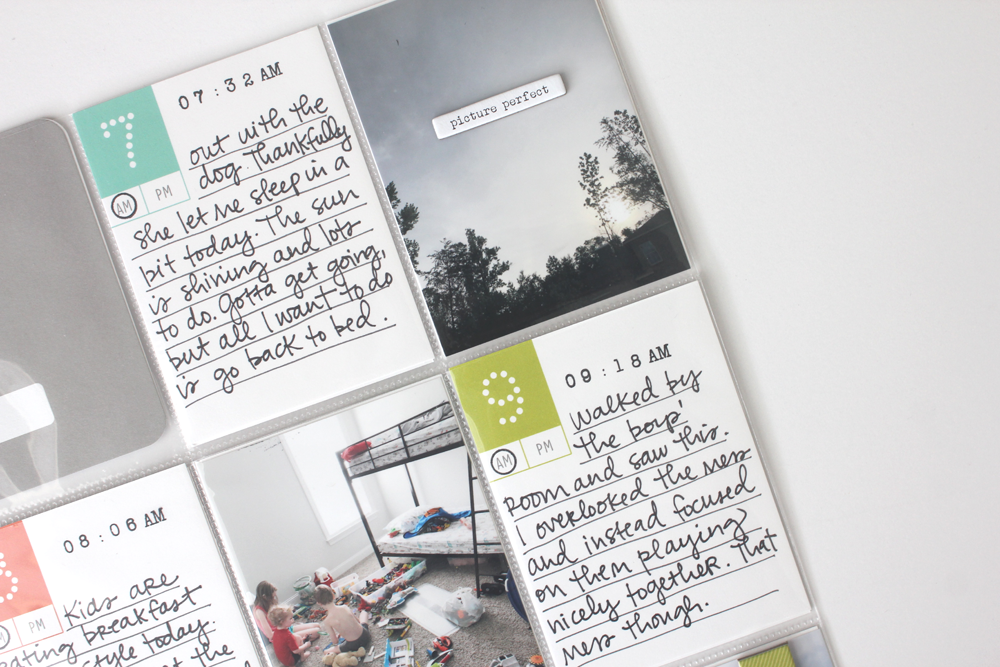 7
AM PM
07:32 AM
out with the
dog. Thankfully
she let me sleep in a
bit today. The sun
is shining and lots
to do. Gotta get going,
but all I want to do
is go back to bed.
picture perfect
8
PM
08:06 AM
Kids are
eating breakfast
style today.
the
9
AM PM
09:18 AM
Walked by
the boys'
room and saw this.
I overlooked the mess
and instead focused
on them playing
nicely together. That
mess though.